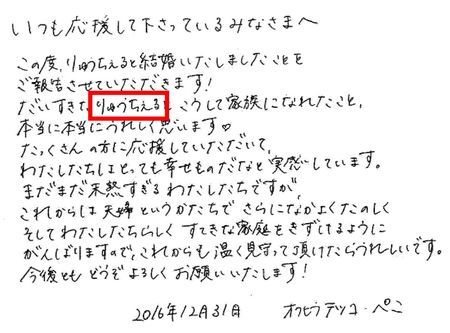 いつも応援して下さっているみなさまへ
この度、りゅうちぇると結婚いたしましたことを
ご報告させていただきます！
だいすきな りゅうちぇると、こうして家族になれたこと、
本当に本当にうれしく思います♡
たっくさんの方に応援していただいて、
わたしたちはとっても幸せものだなと実感しています。
まだまだ未熟すぎるわたしたちですが、
これからは夫婦というかたちでさらになかよくたのしく
そしてわたしたちらしくすてきな家庭をきずけるように
がんばりますので、これからも温く見守って頂けたらうれしいです。
今後ともどうぞよろしくお願いいたします！
2016年12月31日 オクヒラテツコ・ぺこ